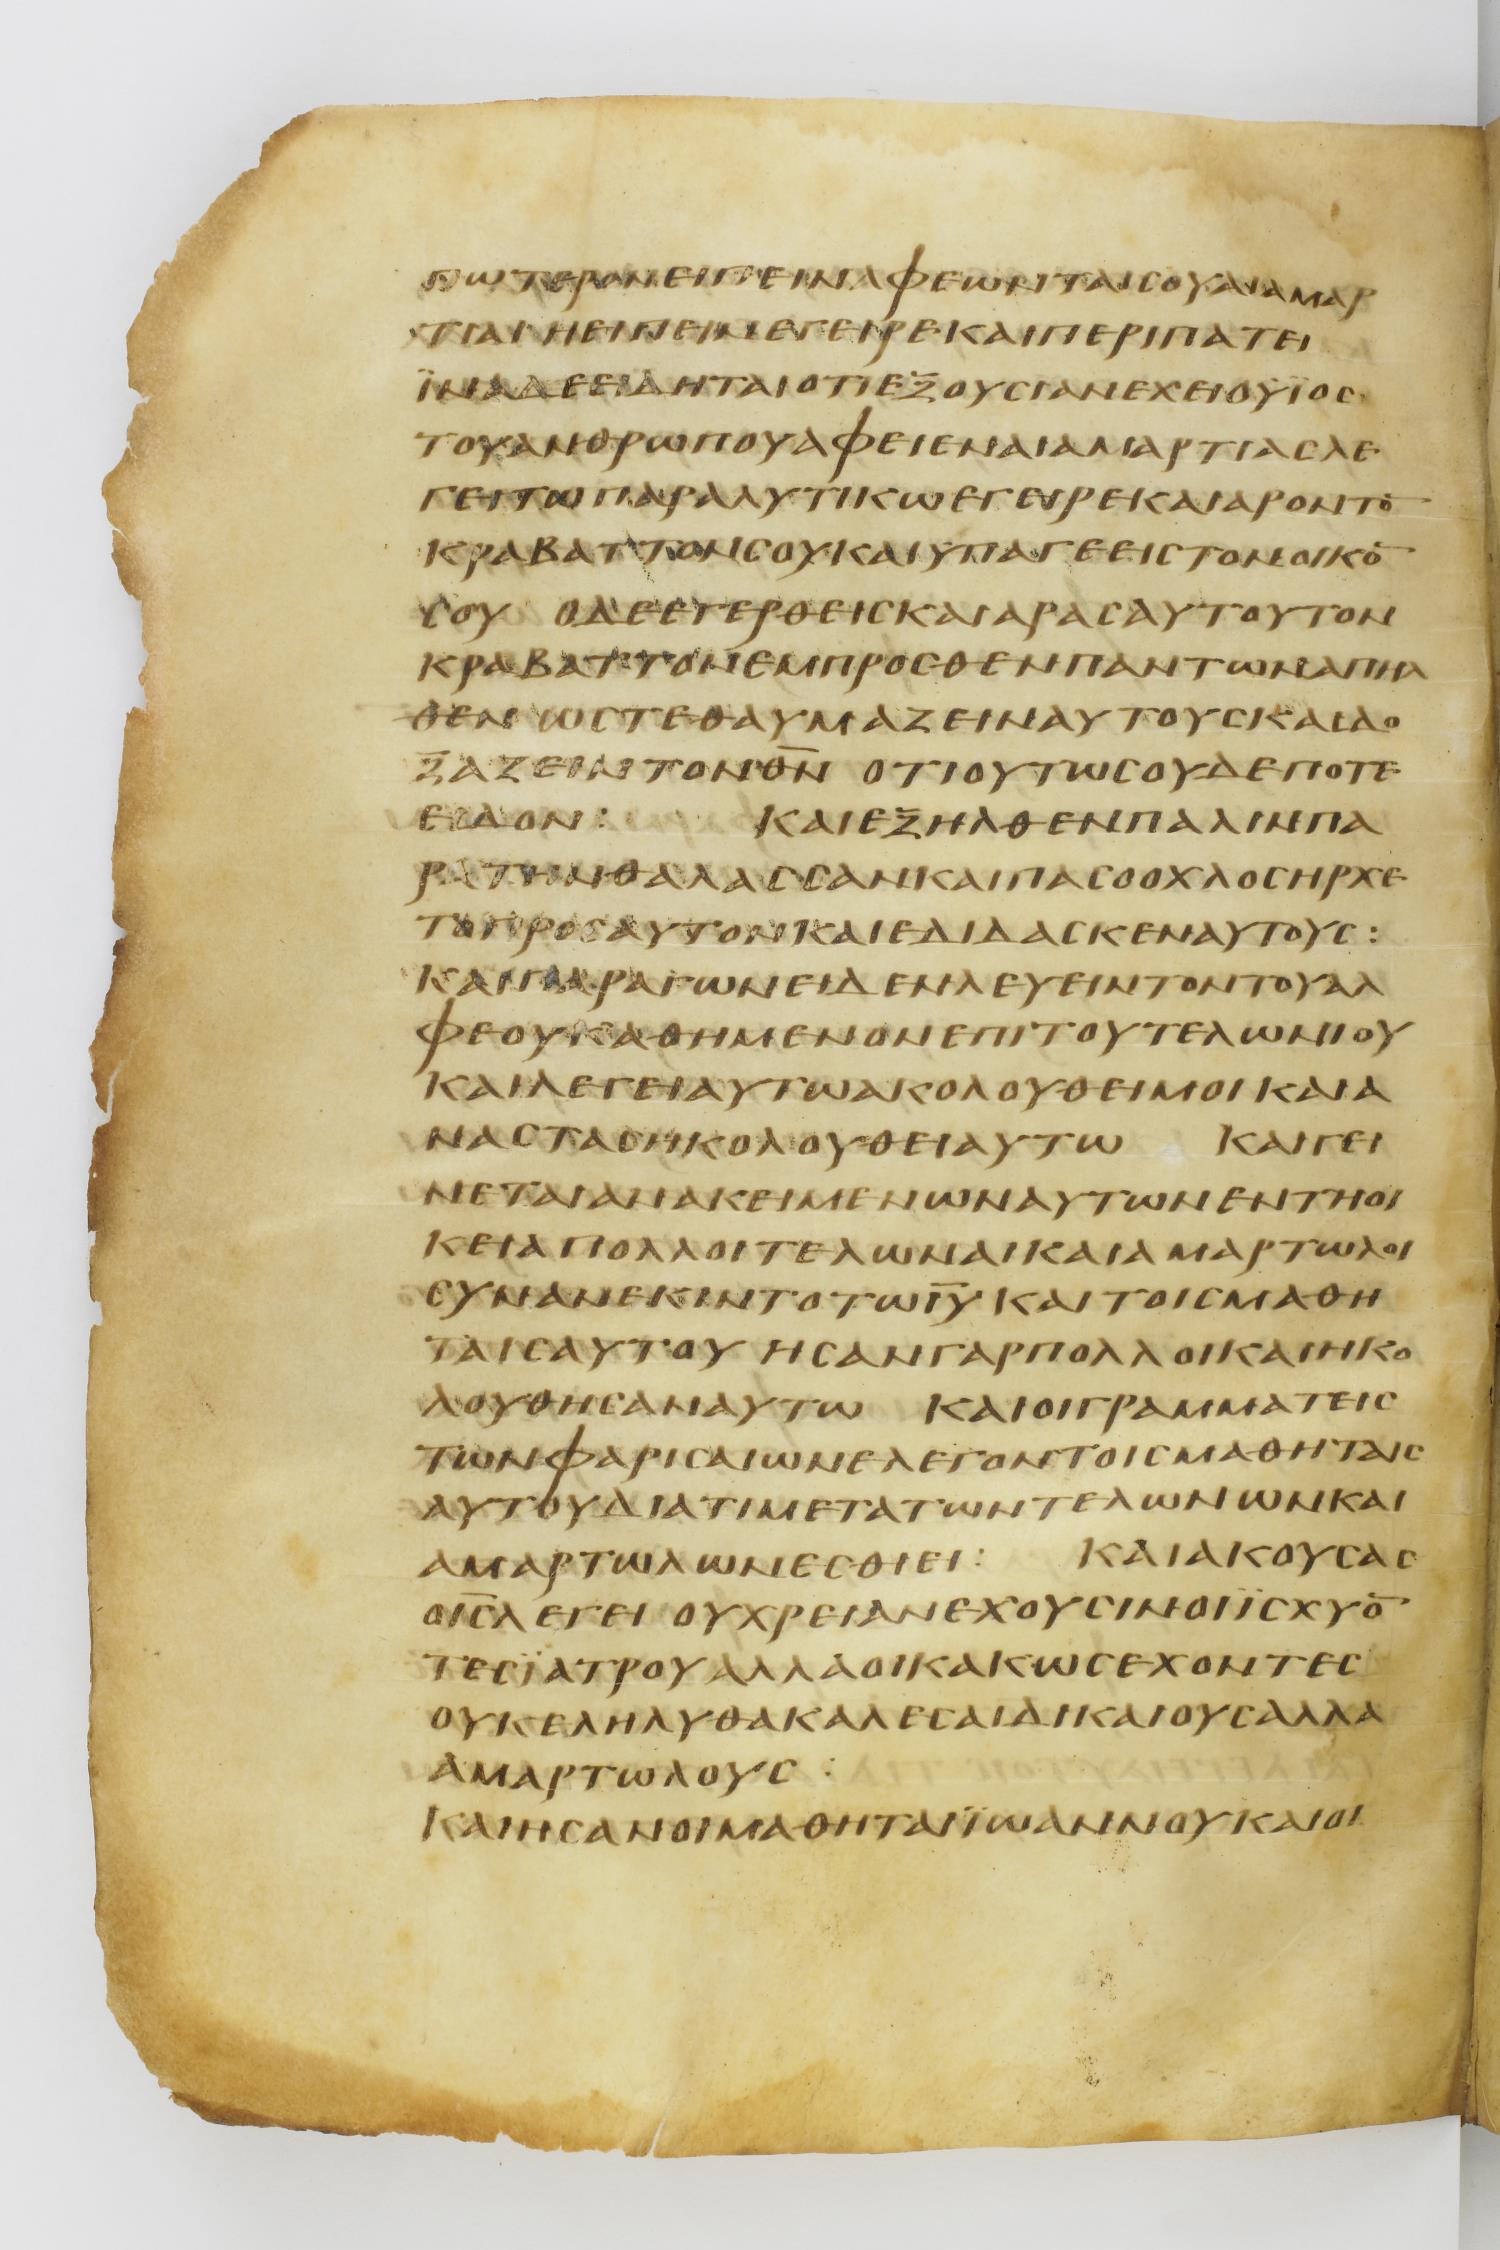 πωτερονειπειναφεωνταισουαιαμαρ
τιαιηειπεινεγειρεκαιπεριπατει
ϊναδεειδηταιοτιεξουσιανεχειοϋϊος
τουανθρωπουαφειεναιαμαρτιασλε
γειτωπαραλυτικωεγειρεκαιαροντο̅
κραβαττονσουκαιυπαγεειστονοικο̅
σου οδεεγερθεισκαιαρασαυτουτον
κραβαττονεμπροσθενπαντωναπηλ
θεν ωστεθαυμαζειναυτουσκαιδο
ξαζειντονθ̅ν̅ οτιουτωσουδεποτε
ειδον: καιεξηλθενπαλινπα
ρατηνθαλασσανκαιπασοοχλοσηρχε
τοπροσαυτονκαιεδιδασκεναυτους:
καιπαραγωνειδενλευειντοντουαλ
φεουκαθημενονεπιτουτελωνιου
καιλεγειαυτωακολουθειμοικαια
ναστασηκολουθειαυτω καιγει
νεταιανακειμενωναυτωνεντηοι
κειαπολλοιτελωναικαιαμαρτωλοι
συνανεκιντοτωι̅υ̅ καιτοισμαθη
ταισαυτου ησανγαρπολλοικαιηκο
λουθησαναυτω καιοιγραμματεις
τωνφαρισαιωνελεγοντοισμαθηταις
αυτουδιατιμετατωντελωνωνκαι
αμαρτωλωνεσθιει: καιακουσας
οι̅ς̅λεγει ουχρειανεχουσινοιϊσχυο̅
τεσϊατρουαλλαοικακωσεχοντες
ουκεληλυθακαλεσαιδικαιουσαλλα
αμαρτωλους:
καιησανοιμαθηταιϊωαννουκαιοι